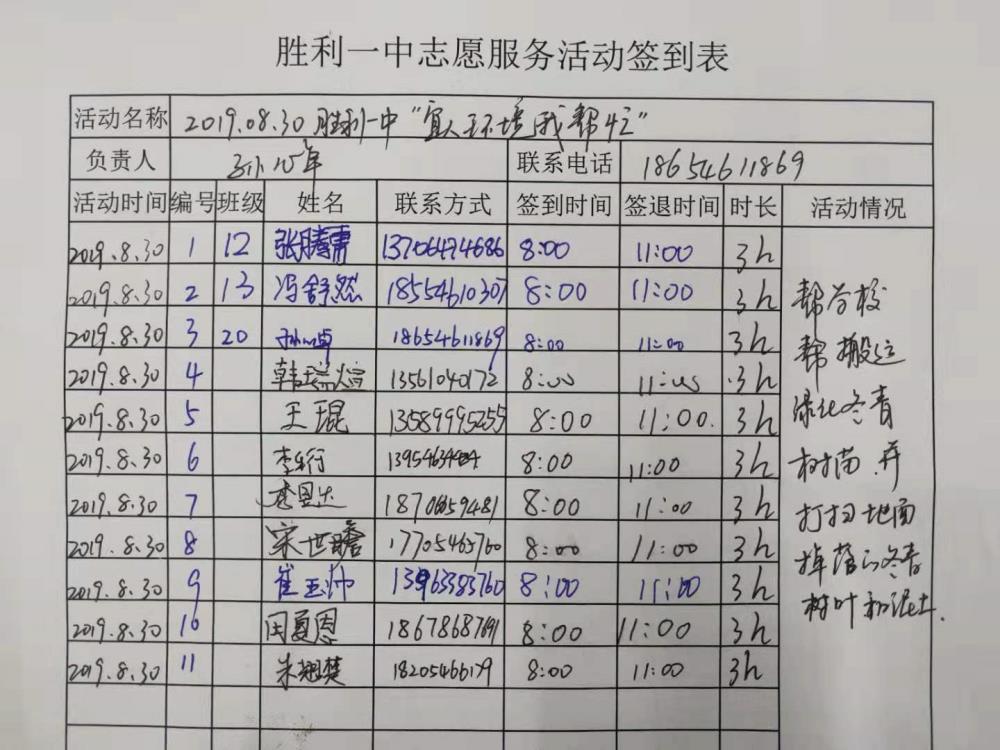 胜利一中志愿服务活动签到表
活动名称 2019.08.30 胜利一中“宜人环境我帮忙”
负责人 联系电话 18654611869
活动时间 编号 班级 姓名 联系方式 签到时间 签退时间 时长 活动情况
2019.8.30 1 12 张腾霄 13706474686 8:00 11:00 3h
2019.8.30 2 13 冯舒然 18554610307 8:00 11:00 3h
2019.8.30 3 20 18654611869 8:00 11:00 3h
2019.8.30 4 韩瑞煊 13561040172 8:00 11:00 3h
2019.8.30 5 王琨 13589995255 8:00 11:00 3h
2019.8.30 6 8:00 11:00 3h
2019.8.30 7 8:00 11:00 3h
2019.8.30 8 宋世瞻 17705465760 8:00 11:00 3h
2019.8.30 9 崔玉帅 8:00 11:00 3h
2019.8.30 10 田夏恩 8:00 11:00 3h
2019.8.30 11 18205466179 8:00 11:00 3h
帮学校
帮搬运
绿化冬青
树苗.并
打扫地面
掉落的冬青
树叶和泥土.